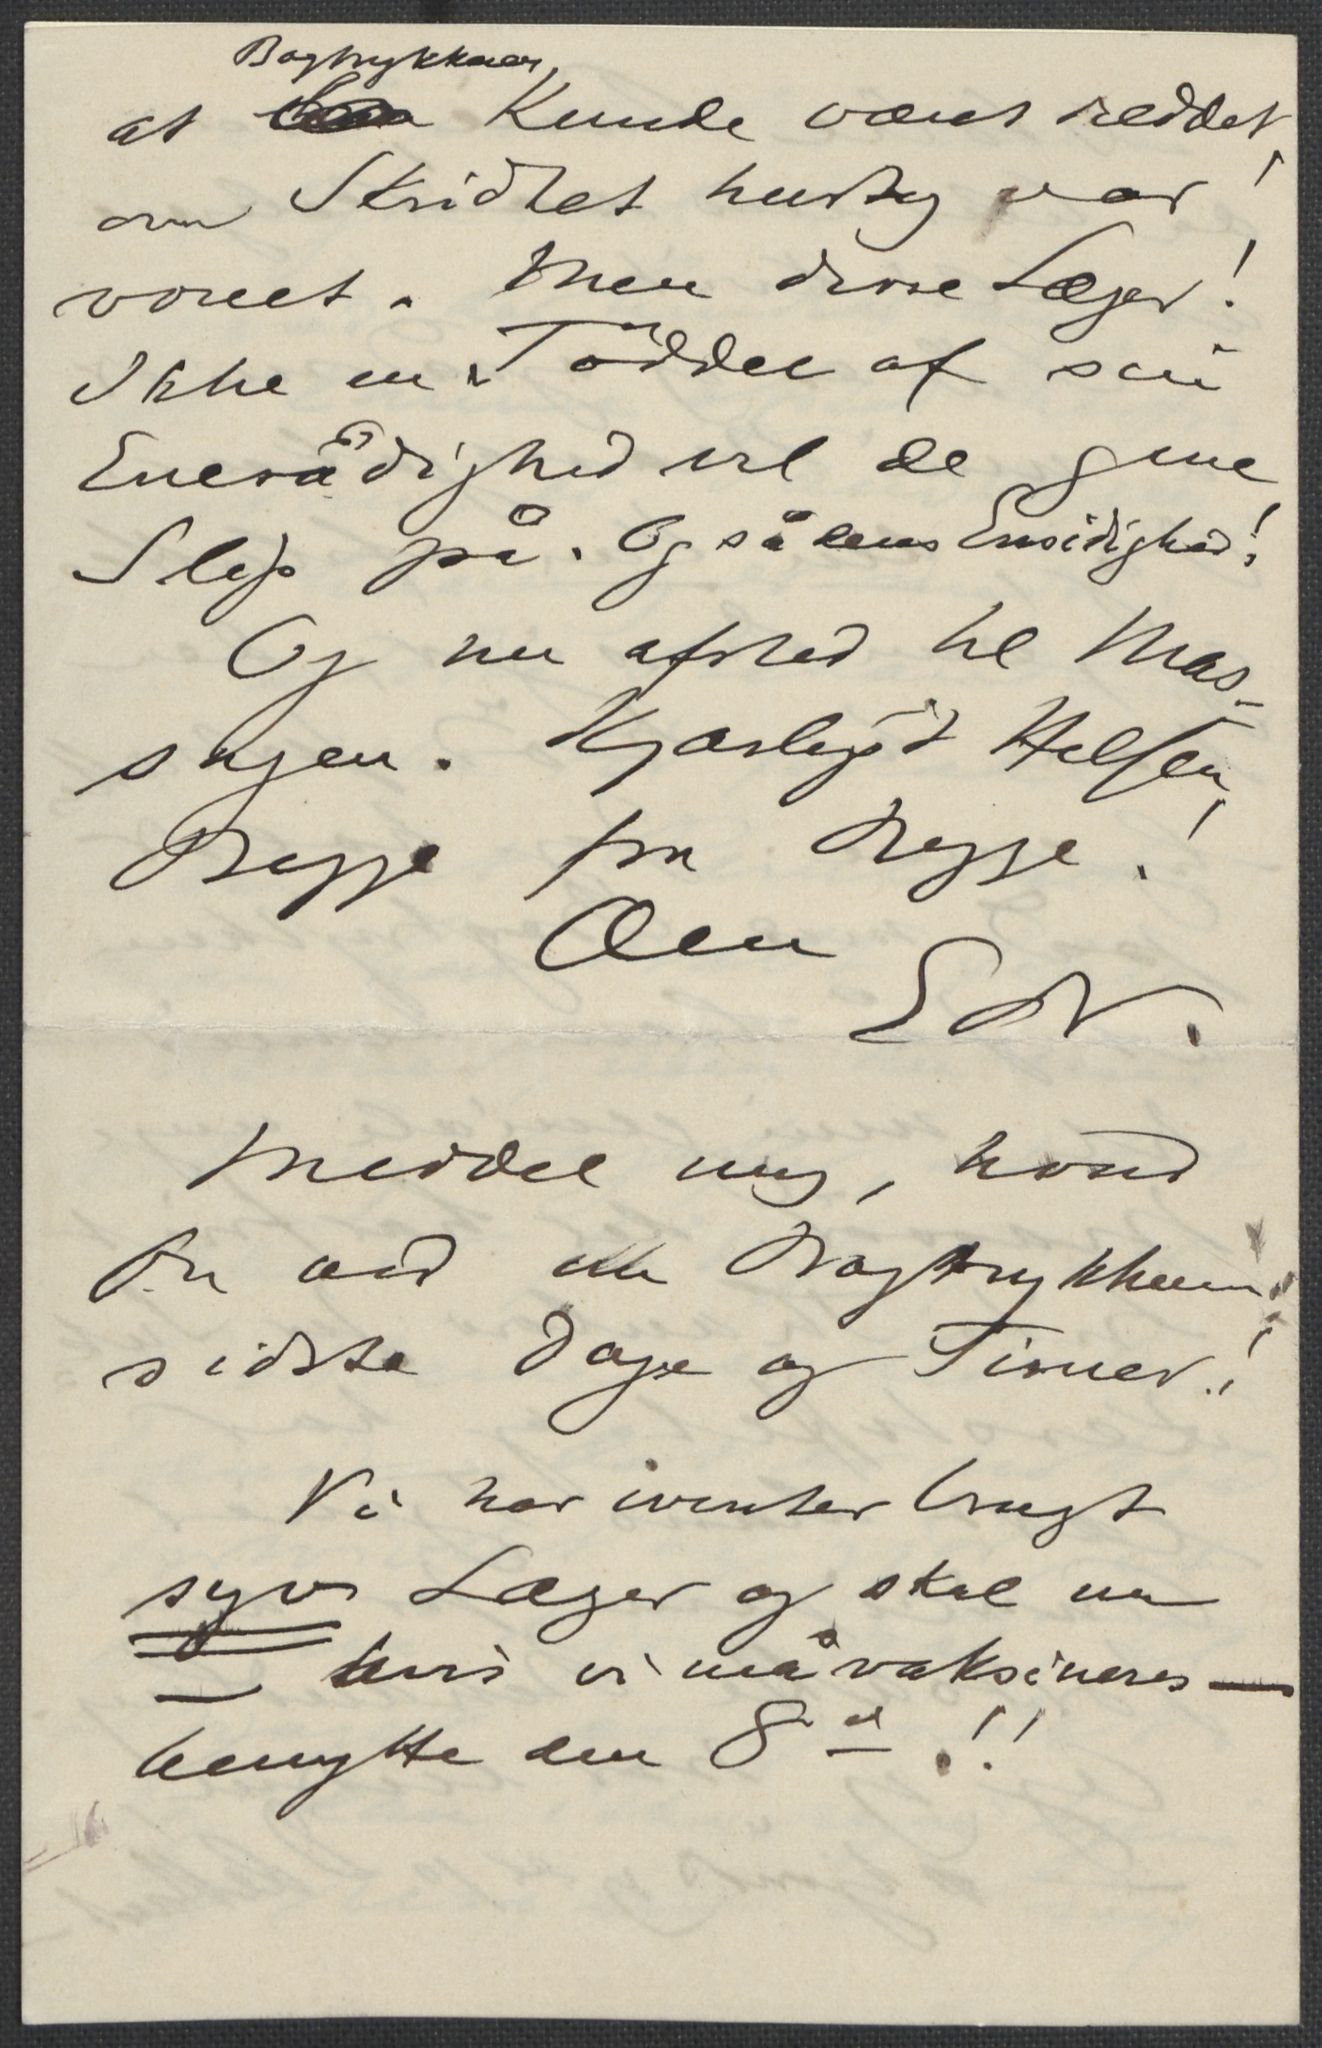 Bogtrykkeren
at Kunde været reddet,
om Skridtet hurtig var
voret. Men disse Læger!
Ikke en Tøddel af sin
Enerådighed vil de give
Slip på. Og så deres Ensidighed!
Og nu afsted til Mas-
sagen. Kjærligst Hilsen,
Begge fra Begge!
Din
Edv.
Meddel mig, hvad
Du ved om Bogtrykkerens
sidste Dage og Timer!
Vi har ivinter brugt
syv Læger og skal nu
– hvis vi må vaksineres –
benytte den 8de!!